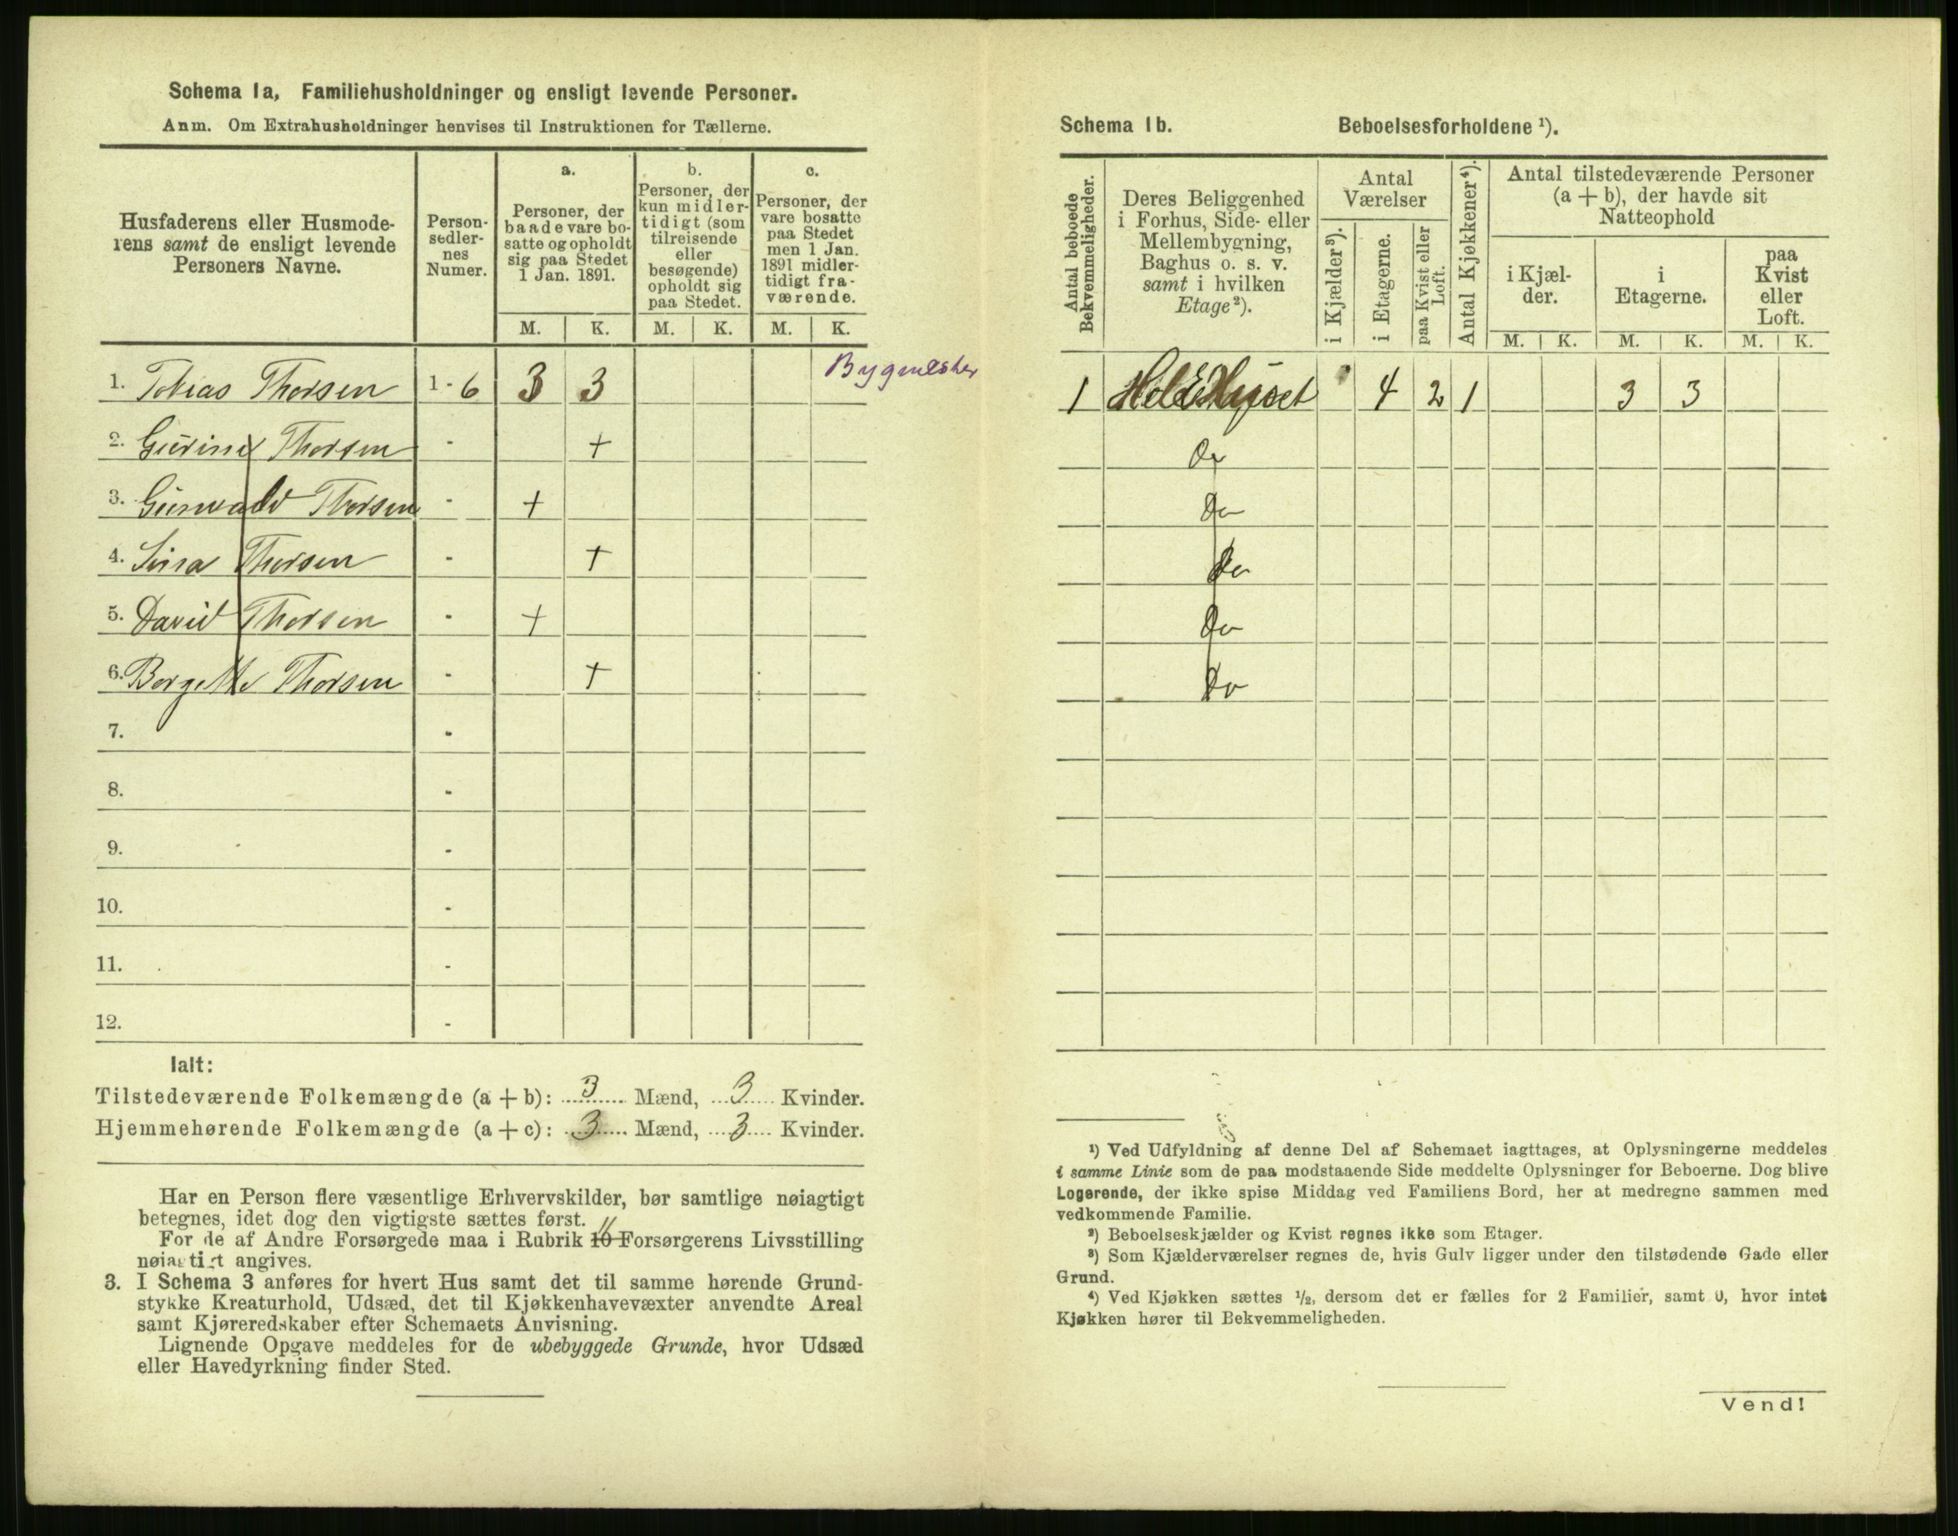 Schema 1a, Familiehusholdninger og ensligt levende Personer.
Anm. Om Extrahusholdninger henvises til Instruktionen for Tællerne.
Husfaderens eller Husmode-
rens samt de ensligt levende
Personers Navne.
Person-
sedler-
nes
Numer.
a.
Personer, der
baade vare bo-
satte og opholdt
sig paa Stedet
1 Jan. 1891.
b.
Personer, der
kun midler-
tidigt (som
tilreisende
eller
besøgende)
opholdt sig
paa Stedet.
c.
Personer, der
vare bosatte
paa Stedet
men 1 Jan.
1891 midler-
tidigt fra-
værende.
M. K. M. K. M. K.
1. Tobias Thorsen 1 - 6 3 3 Bygmester
2. Gurine Thorsen - +
3. Gunvald Thorsen - +
4. Sina Thorsen - +
5. David Thorsen - +
6. Borgette Thorsen - +
7. -
8. -
9. -
10. -
11. -
12. -
Ialt:
Tilstedeværende Folkemængde (a + b): 3 Mænd, 3 Kvinder.
Hjemmehørende Folkemængde (a + c): 3 Mænd, 3 Kvinder.
Har en Person flere væsentlige Erhvervskilder, bør samtlige nøiagtigt
betegnes, idet dog den vigtigste sættes først.
11
For de af Andre Forsørgede maa i Rubrik 10 Forsørgerens Livsstilling
nøiagtigt angives.
3. I Schema 3 anføres for hvert Hus samt det til samme hørende Grund-
stykke Kreaturhold, Udsæd, det til Kjøkkenhavevæxter anvendte Areal
samt Kjøreredskaber efter Schemaets Anvisning.
Lignende Opgave meddeles for de ubebyggede Grunde, hvor Udsæd
eller Havedyrkning finder Sted.
Schema 1b. Beboelsesforholdene ¹).
Antal beboede
Bekvemmeligheder.
Deres Beliggenhed
i Forhus, Side- eller
Mellembygning,
Baghus o. s. v.
samt i hvilken
Etage²).
Antal
Værelser
i Kjælder³).
i Etagerne.
paa Kvist eller
Loft.
Antal Kjøkkener⁴).
Antal tilstedeværende Personer
(a + b), der havde sit
Natteophold
i Kjæl-
der.
i
Etagerne.
paa
Kvist
eller
Loft.
M. K. M. K. M. K.
1 Hele Huset 4 2 1 3 3
Do
Do
Do
Do
Do
¹) Ved Udfyldning af denne Del af Schemaet iagttages, at Oplysningerne meddeles
i samme Linie som de paa modstaaende Side meddelte Oplysninger for Beboerne. Dog blive
Logerende, der ikke spise Middag ved Familiens Bord, her at medregne sammen med
vedkommende Familie.
²) Beboelseskjælder og Kvist regnes ikke som Etager.
³) Som Kjælderværelser regnes de, hvis Gulv ligger under den tilstødende Gade eller
Grund.
⁴) Ved Kjøkken sættes ½, dersom det er fælles for 2 Familier, samt 0, hvor intet
Kjøkken hører til Bekvemmeligheden.
Vend!